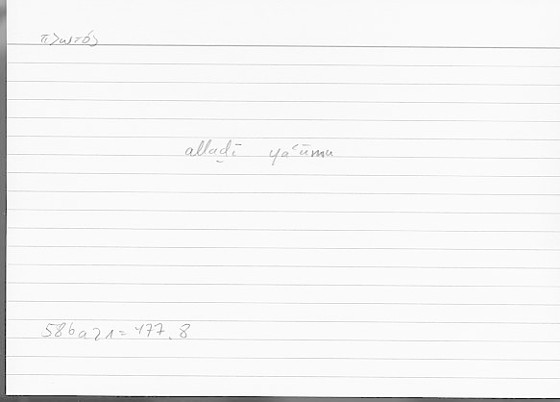 πλωτός
allaḏī yaʿūmu
586a21 = 477.8